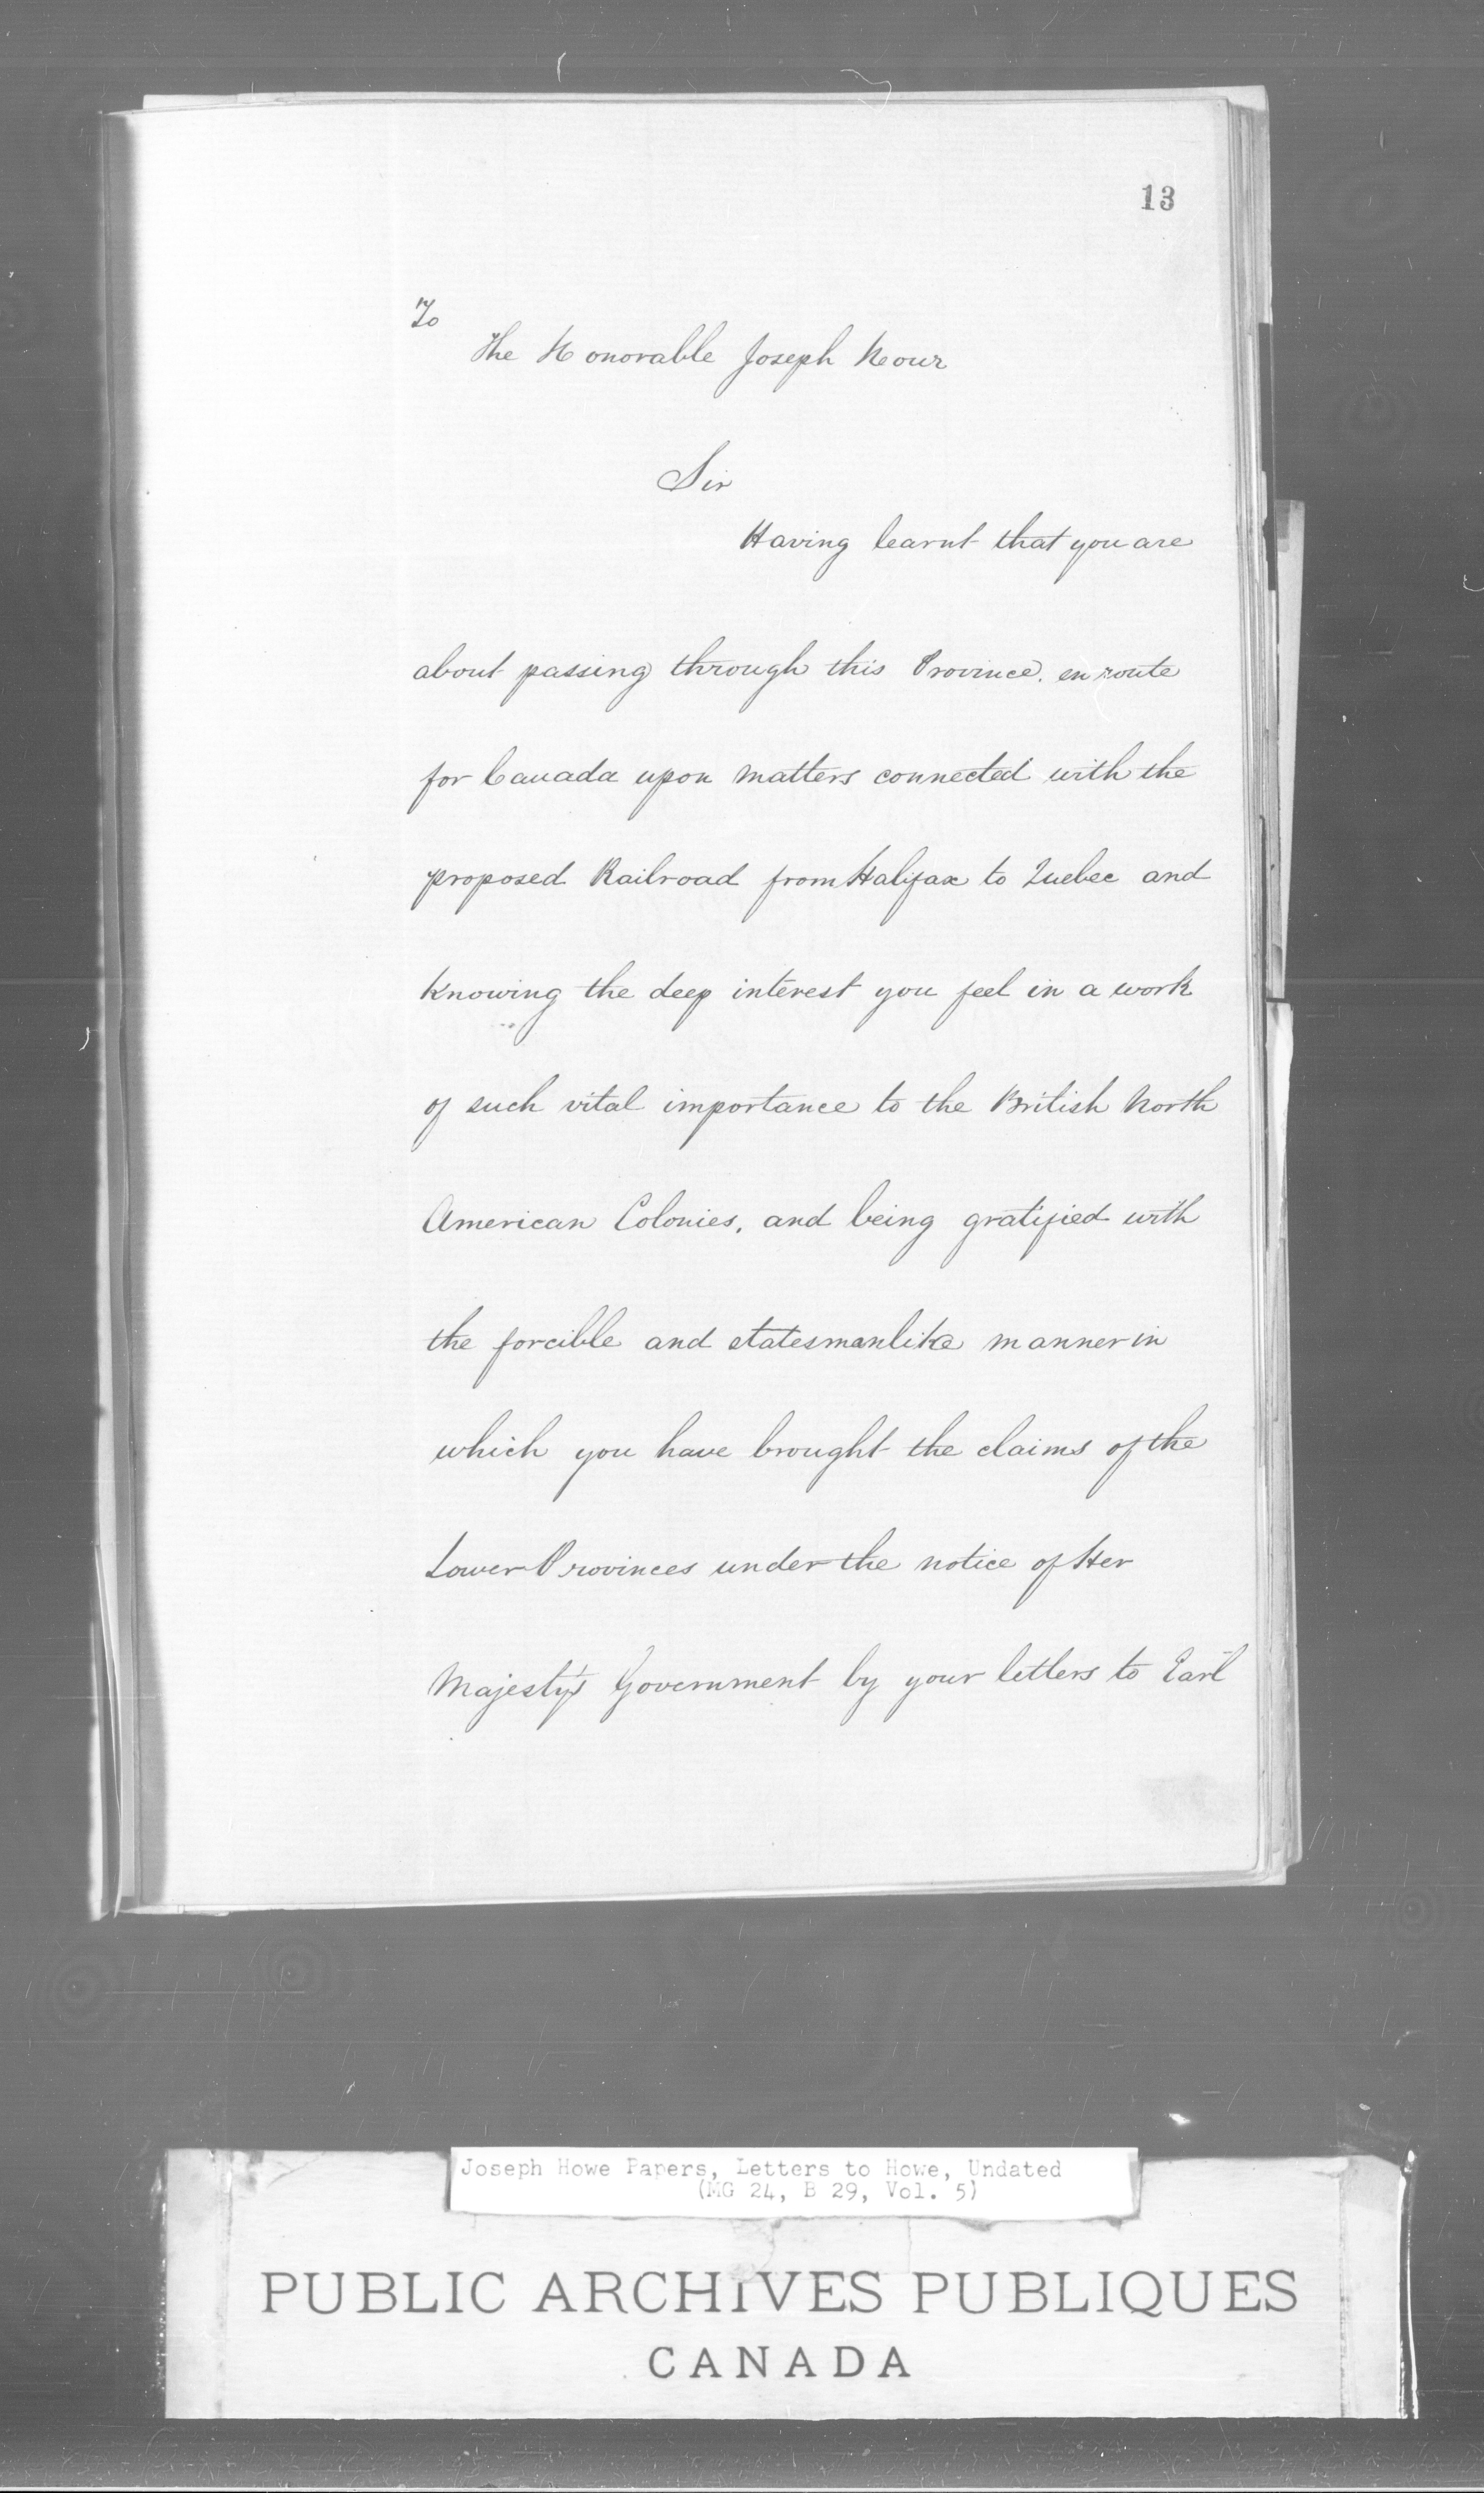 13
To
The Honorable Joseph Howe
Sir
Having learnt that you are
about passing through this Province. en route
for Canada upon matters connected with the
proposed Railroad from Halifax to Quebec and
knowing the deep interest you feel in a work
of such vital importance to the British North
American Colonies, and being gratified with
the forcible and statesmanlike manner in
which you have brought the claims of the
Lower Provinces under the notice of Her
Majesty's Government by your letters to Earl
Joseph Howe Papers, Letters to Howe, Undated
(MG 24, B 29, Vol. 5)
PUBLIC ARCHIVES PUBLIQUES
CANADA